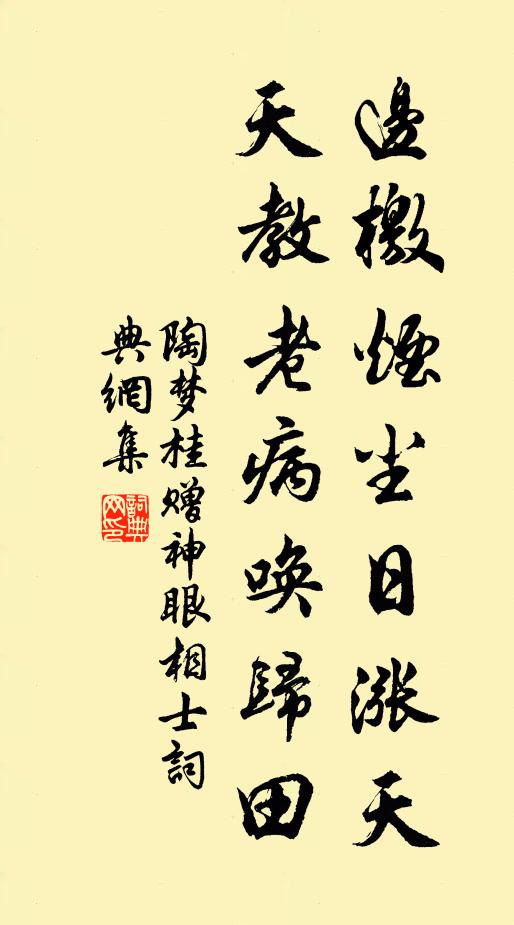 邊檄煙尘日漲天
天教老病唤歸田
陶梦桂赠神眼相士詞
典網集
詞典网印